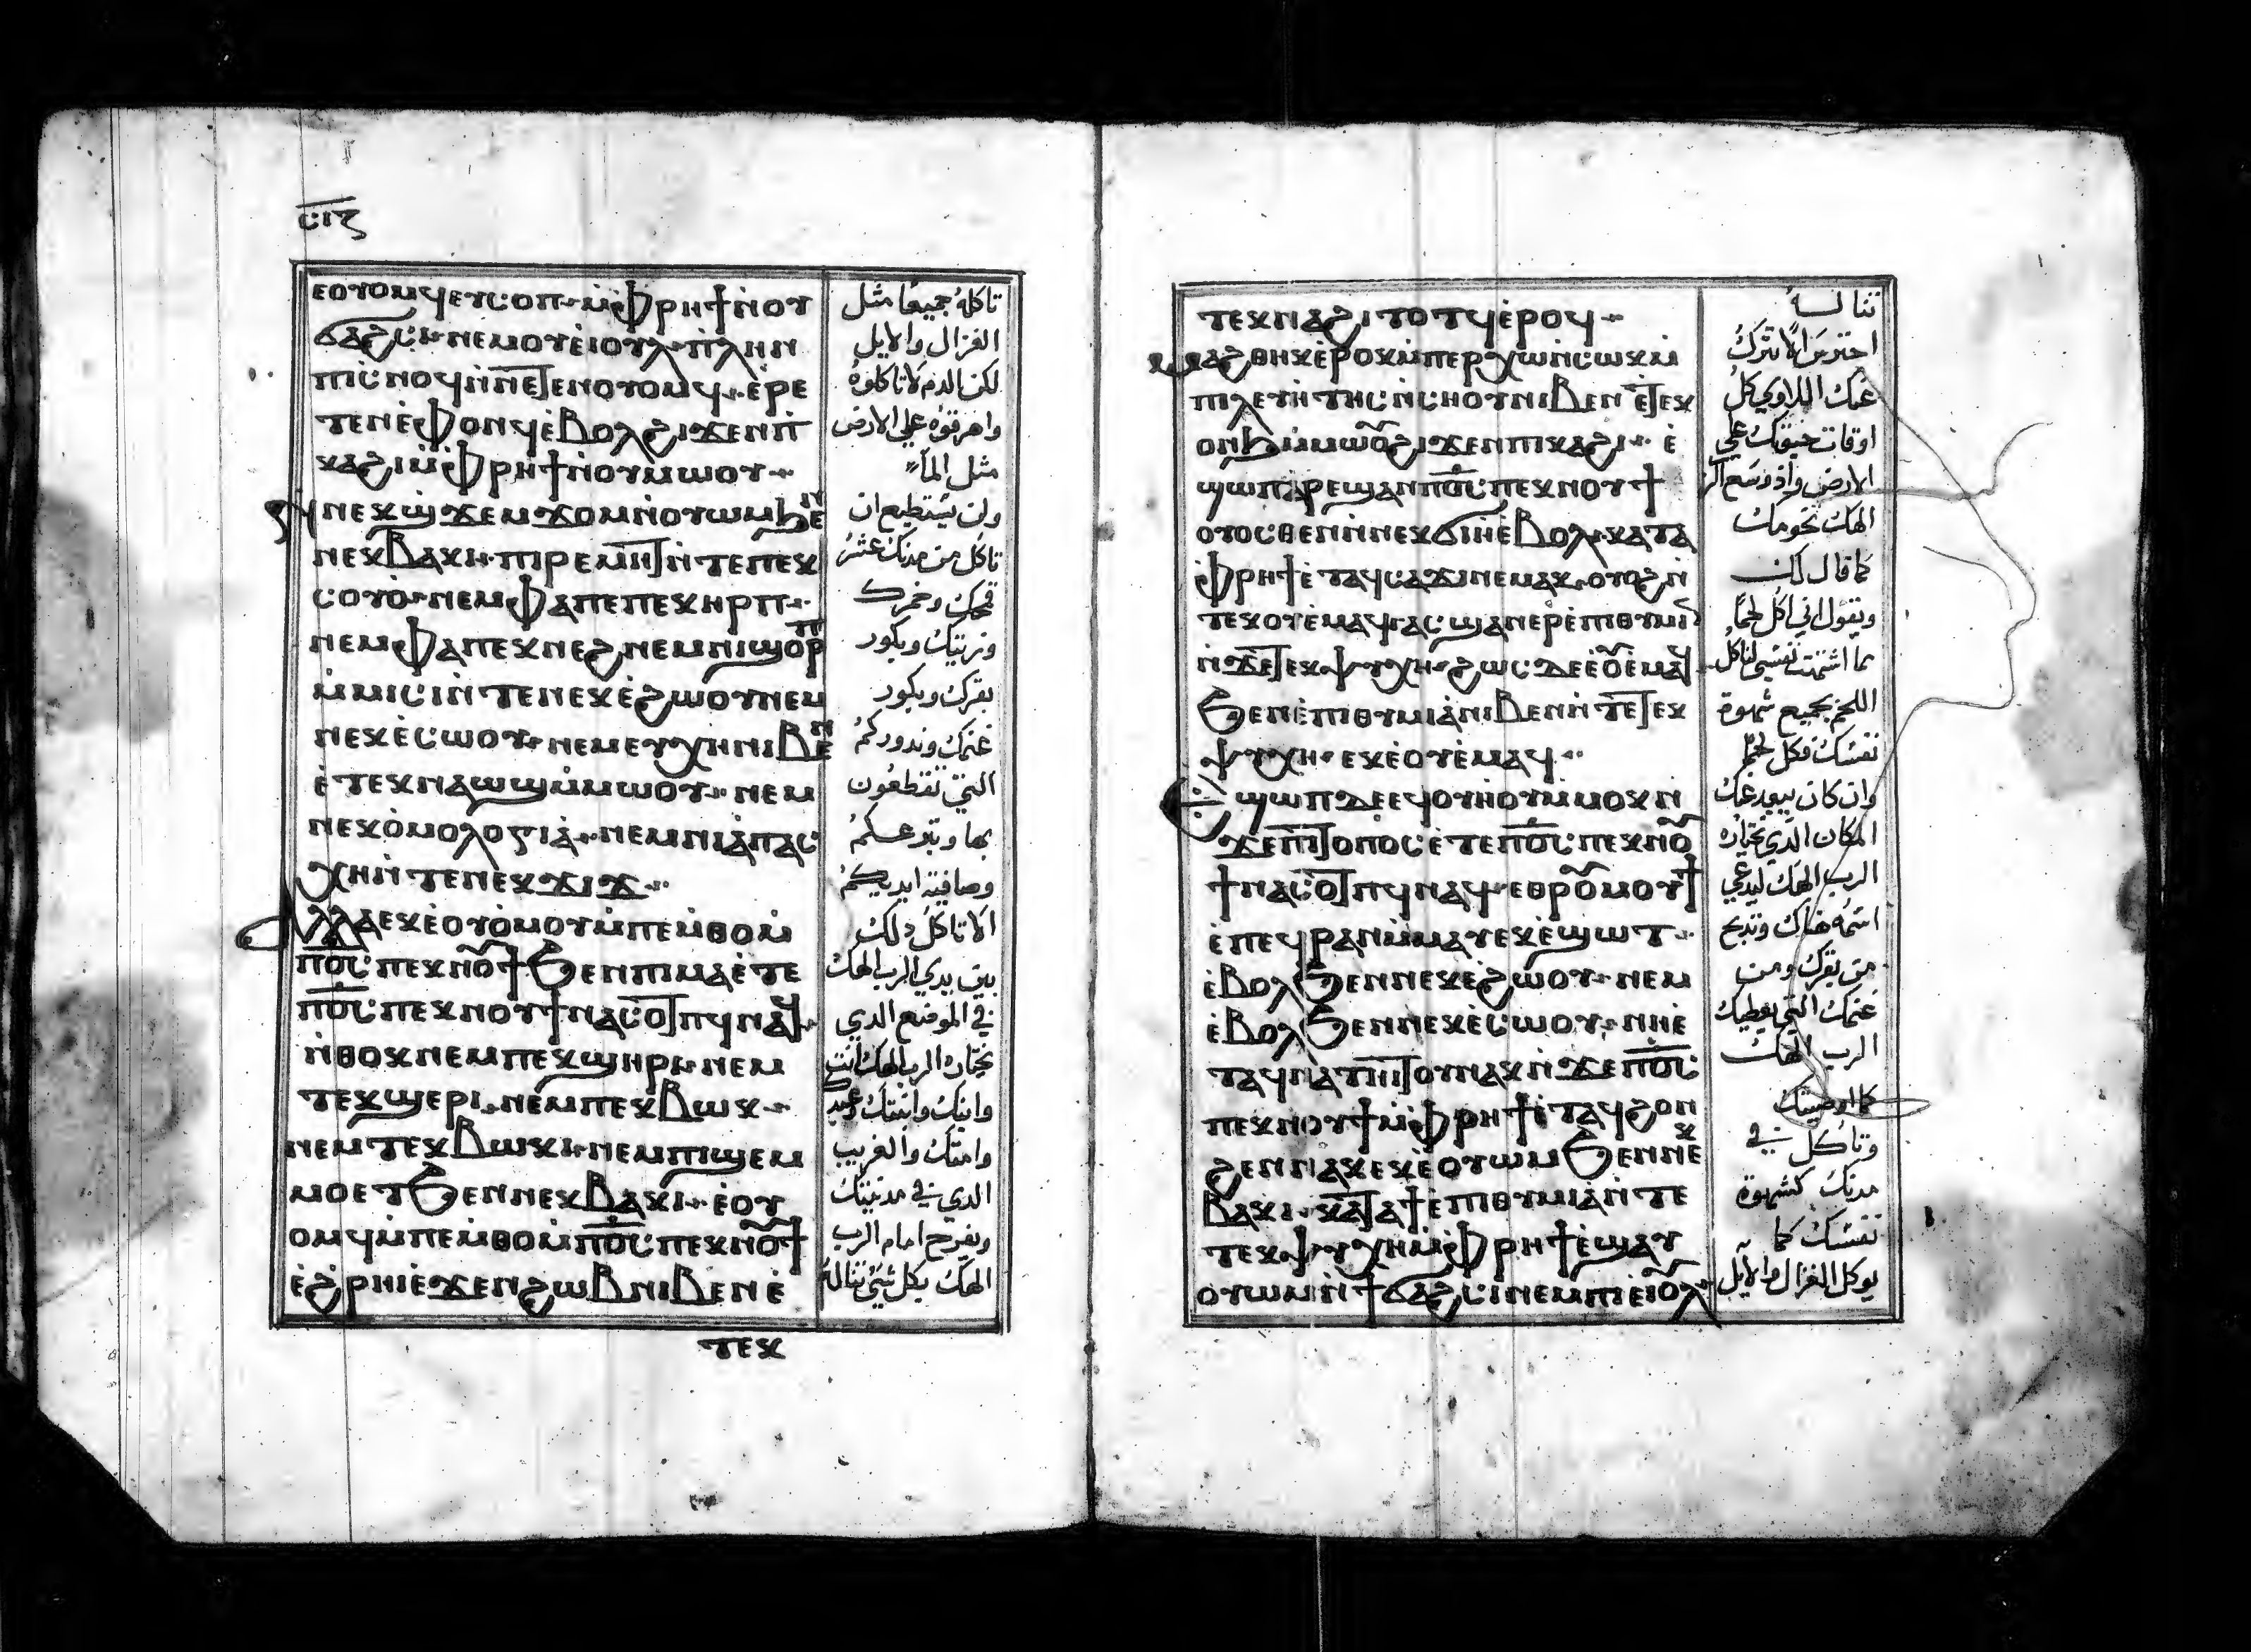 ⲥⲓⲍ
ⲉⲟⲩⲟⲙϥ ⲉⲩⲥⲟⲡ ⲙ̀ⲫⲣⲏϯ ⲛ̀ⲟⲩ
ϭⲁϩⲥⲓ ⲛⲉⲙ ⲟⲩⲉ̀ⲓⲟⲩⲗ ⲡⲗⲏⲛ
ⲡⲓⲥⲛⲟϥ ⲛ̀ⲛⲉⲧⲉⲛⲟⲩⲟⲙϥ ⲉ̀ⲣⲉ
ⲧⲉⲛⲉ̀ⲫⲟⲛϥ ⲉ̀ⲃⲟⲗ ϩⲓϫⲉⲛ ⲡ
ⲕⲁϩⲓ ⲙ̀ⲫⲣⲏϯ ⲛ̀ⲟⲩⲙⲱⲟⲩ
ⲛⲉⲕϣϫⲉⲙϫⲟⲙ ⲛ̀ⲟⲩⲱⲙ ϧⲉⲛ
ⲛⲉⲕⲃⲁⲕⲓ ⲡⲓⲣⲉⲙⲏⲧ ⲛ̀ⲧⲉ ⲡⲉⲕ
ⲥⲟⲩⲟ̀ ⲛⲉⲙ ⲫⲁ ⲡⲉⲡⲉⲕⲏⲣⲡ
ⲛⲉⲙ ⲫⲁ ⲡⲉⲕⲛⲉϩ ⲛⲉⲙ ⲛⲓϣⲟⲣⲡ
ⲙ̀ⲙⲓⲥⲓ ⲛ̀ⲧⲉ ⲛⲉⲕⲉ̀ϩⲱⲟⲩ ⲛⲉⲙ
ⲛⲉⲕⲉ̀ⲥⲱⲟⲩ ⲛⲉⲙ ⲉⲩⲭⲏ ⲛⲓⲃⲉⲛ
ⲉ̀ⲧⲉⲕⲛⲁⲱϣ ⲙ̀ⲙⲱⲟⲩ ⲛⲉⲙ
ⲛⲉⲕⲟ̀ⲙⲟⲗⲟⲅⲓⲁ̀ ⲛⲉⲙ ⲛⲓⲁ̀ⲡⲁⲣ
ⲭⲏ ⲛ̀ⲧⲉ ⲛⲉⲕϫⲓϫ
ⲁⲗⲗⲁ ⲉⲕⲉ̀ⲟⲩⲟ̀ⲙⲟⲩ ⲙ̀ⲡⲉⲙ̀ⲑⲟ ⲙ̀
ⲡϭⲥ ⲡⲉⲕⲛⲟⲩϯ ϧⲉⲛ ⲡⲓⲙⲁ ⲉ̀ⲧⲉ
ⲡϭⲥ ⲡⲉⲕⲛⲟⲩϯ ⲛⲁⲥⲟⲧⲡϥ ⲛⲁϥ
ⲛ̀ⲑⲟⲕ ⲛⲉⲙ ⲡⲉⲕϣⲏⲣⲓ ⲛⲉⲙ
ⲧⲉⲕϣⲉⲣⲓ ⲛⲉⲙ ⲡⲉⲕⲃⲱⲕ
ⲛⲉⲙ ⲧⲉⲕⲃⲱⲕⲓ ⲛⲉⲙ ⲡⲓϣⲉⲙ
ⲙⲟ ⲉⲧϧⲉⲛ ⲛⲉⲕⲃⲁⲕⲓ ⲉⲟⲩ
ⲟⲙϥ ⲙ̀ⲡⲉⲙ̀ⲑⲟ ⲙ̀ⲡϭⲥ ⲡⲉⲕⲛⲟⲩϯ
ⲉ̀ϩ̀ⲣⲏⲓ ⲉ̀ϫⲉⲛ ϩⲱⲃ ⲛⲓⲃⲉⲛ ⲉ̀
ⲧⲉⲕ
تاكلهُ جميعًا مثل
الغزال والايل
لكن الدم لا تاكلوهُ
واهرقوهُ علي الارض
مثل الماء
ولن تستطيع ان
تاكل من مدنك عشر
قمحك وخمرك
وزيتك وبكور
بقرك وبكور
غنمك وندوركم
التي
بها
ايديكم
الا تاكل دلك
بين يدي الرب الهك
في الموضع الدي
يختاره الرب الهك انت
وابنك وابنتك وعبدك
وامتك والغريب
الدي في مدينتك
وتفرح امام الرب
الهك بكل شي تناله
ⲧⲉⲕⲛⲁϩⲓⲧⲟⲧϥ ⲉ̀ⲣⲟϥ
ⲙⲁϩⲑⲏⲕ ⲉ̀ⲣⲟⲕ ⲙ̀ⲡⲉⲣⲭⲱ ⲛ̀ⲥⲱⲕ ⲙ̀
ⲡⲓⲗⲉⲩⲓⲧⲏⲥ ⲛ̀ⲥⲏⲟⲩ ⲛⲓⲃⲉⲛ ⲉⲧⲉⲕ
ⲟⲛϧ ⲙ̀ⲙⲱⲟⲩ ϩⲓϫⲉⲛ ⲡⲓⲕⲁϩⲓ ⲉ̀
ϣⲱⲡ ⲁⲣⲉϣⲁⲛ ⲡϭⲥ ⲡⲉⲕⲛⲟⲩϯ
ⲟⲩⲟⲥⲑⲉⲛ ⲛ̀ⲛⲉⲕϭⲓⲏ ⲉ̀ⲃⲟⲗ ⲕⲁⲧⲁ
ⲫⲣⲏϯ ⲉ̀ⲧⲁϥⲥⲁϫⲓ ⲛⲉⲙⲁⲕ ⲟⲩⲟϩ ⲛ̀
ⲧⲉⲕⲟⲩⲉⲙ ⲁϥ ⲁⲥϣⲁⲛⲉⲣⲉ̀ⲡⲓⲑⲩⲙⲓⲛ
ⲛ̀ϫⲉ ⲧⲉⲕⲯⲩⲭⲏ ϩⲱⲥ ⲇⲉ ⲉ̀ⲟⲩⲉⲙ ⲁϥ
ϧⲉⲛ ⲉ̀ⲡⲓⲑⲩⲙⲓⲁ ⲛⲓⲃⲉⲛ ⲛ̀ⲧⲉ ⲧⲉⲕ
ⲯⲩⲭⲏ ⲉⲕⲉ̀ⲟⲩⲉ̀ⲙ ⲁϥ
ⲉϣⲱⲡ ⲇⲉ ⲉϥⲟⲩⲏⲟⲩ ⲙ̀ⲙⲟⲕ ⲛ̀
ϫⲉ ⲡⲓⲧⲟⲡⲟⲥ ⲉ̀ⲧⲉ ⲡϭⲥ ⲡⲉⲕⲛⲟⲩ
ϯ ⲛⲁⲥⲟⲧⲡϥ ⲛⲁϥ ⲉⲑⲣⲟⲩⲙⲟⲩϯ
ⲉ̀ⲡⲉϥⲣⲁⲛ ⲙ̀ⲙⲁⲩ ⲉⲕⲉ̀ϣⲱⲧ
ⲉ̀ⲃⲟⲗ ϧⲉⲛ ⲛⲉⲕⲉ̀ϩⲱⲟⲩ ⲛⲉⲙ
ⲉ̀ⲃⲟⲗ ϧⲉⲛ ⲛⲉⲕⲉ̀ⲥⲱⲟⲩ ⲛⲏⲉ̀
ⲧⲁϥⲛⲁⲧⲏⲓⲧⲟⲩ ⲛⲁⲕ ⲛ̀ϫⲉ ⲡϭⲥ
ⲡⲉⲕⲛⲟⲩϯ ⲙ̀ⲫⲣⲏϯ ⲉ̀ⲧⲁϥϩⲟⲛ
ϩⲉⲛ ⲛⲁⲕ ⲉⲕⲉ̀ⲟⲩⲱⲙ ϧⲉⲛ ⲛⲉⲕ
ⲃⲁⲕⲓ ⲕⲁⲧⲁ ϯⲉ̀ⲡⲓⲑⲩⲙⲓⲁ ⲛ̀ⲧⲉ
ⲧⲉⲕⲯⲩⲭⲏ ⲙ̀ⲫⲣⲏϯ ⲉ̀ϣⲁⲩ
ⲟⲩⲱⲙ ⲛ̀ϯϭⲁϩⲥⲓ ⲛⲉⲙ ⲡⲓⲉⲓⲟⲩⲗ
تنا لسهُ
احترس الا تترك
عنك اللاوي كل
اوقات علي
الارض واذ وسع الرب
الهك تخومك
كما قال لك
وتقول اني اكل لحمًا
نفسك لتاكل
اللحم بجميع شهوة
نفسك فكل لحم
وان كان يبعد عنك
المكان الدي يختاره
الرب الهك ليدعي
اسمه هناك وتدبح
من بقرك ومن
غنمك التي يعطيك
الرب الهك
كما اوصيتك
وتاكل في
مدنك كشهوة
نفسك كما
يوكل الغزال والايل